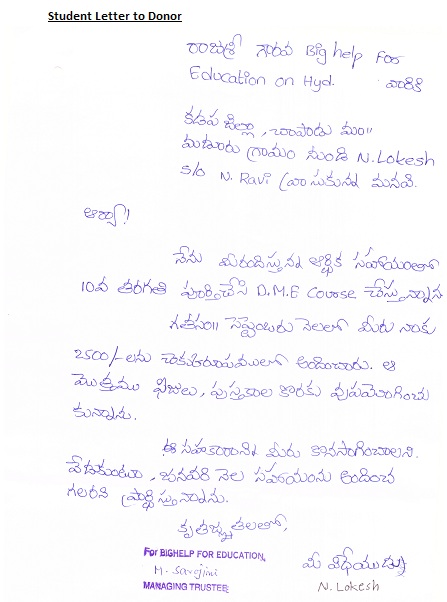 Student Letter to Donor
రాజశ్రీ గౌరవ Big help For
Education on Hyd. వారికి
కడప జిల్లా, చాపాడు మం॥
మడూరు గ్రామం నుండి N. Lokesh
S/o N. Ravi వ్రాసుకున్న మనవి.
ఆర్యా!
నేను మీరందిస్తున్న ఆర్థిక సహాయంతో
10వ తరగతి పూర్తిచేసి D.M.E Course చేస్తున్నాను
గతసం॥ సెప్టెంబరు నెలలో మీరు నాకు
2500/- లను చెకురూపములో అందించారు. ఆ
మొత్తము ఫీజులు, పుస్తకాల కొరకు వుపయోగించు
కున్నాను.
ఈ సహకారాన్ని మీరు కొనసాగించాలని.
వేడుకుంటూ, జనవరి నెల సహాయంను అందించ
గలరని ప్రార్థిస్తున్నాను.
కృతజ్ఞతలతో,
For BIGHELP FOR EDUCATION,
M. Sarojini
MANAGING TRUSTEE
మీ విధేయుడు
N. Lokesh